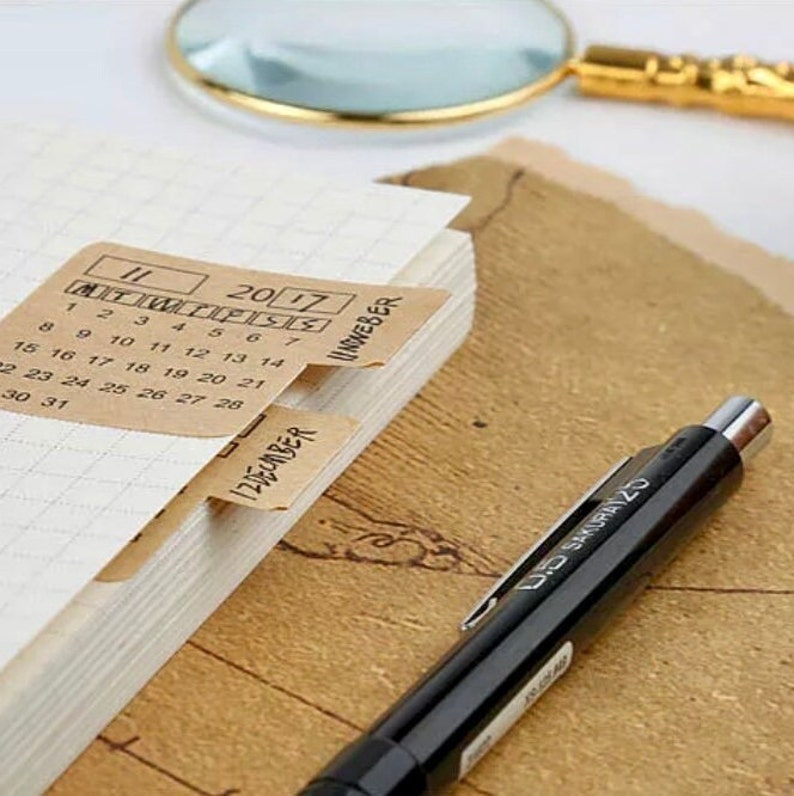 11
2017
M T W T F S S
1 2 3 4 5 6 7
8 9 10 11 12 13 14
15 16 17 18 19 20 21
22 23 24 25 26 27 28
30 31
11NOWEBER
12DECMBER
0.5 SAKURA 125